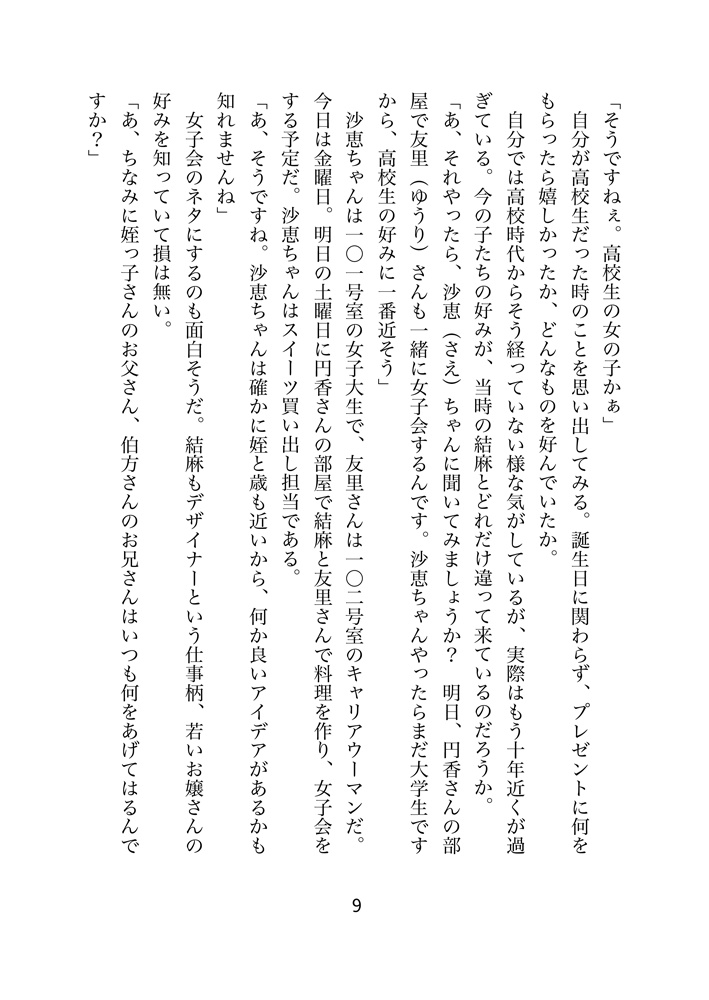 「そうですねぇ。高校生の女の子かぁ」
　自分が高校生だった時のことを思い出してみる。誕生日に関わらず、プレゼントに何を
もらったら嬉しかったか、どんなものを好んでいたか。
　自分では高校時代からそう経っていない様な気がしているが、実際はもう十年近くが過
ぎている。今の子たちの好みが、当時の結麻とどれだけ違って来ているのだろうか。
「あ、それやったら、沙恵（さえ）ちゃんに聞いてみましょうか？　明日、円香さんの部
屋で友里（ゆうり）さんも一緒に女子会するんです。沙恵ちゃんやったらまだ大学生です
から、高校生の好みに一番近そう」
　沙恵ちゃんは一〇一号室の女子大生で、友里さんは一〇二号室のキャリアウーマンだ。
今日は金曜日。明日の土曜日に円香さんの部屋で結麻と友里さんで料理を作り、女子会を
する予定だ。沙恵ちゃんはスイーツ買い出し担当である。
「あ、そうですね。沙恵ちゃんは確かに姪と歳も近いから、何か良いアイデアがあるかも
知れませんね」
　女子会のネタにするのも面白そうだ。結麻もデザイナーという仕事柄、若いお嬢さんの
好みを知っていて損は無い。
「あ、ちなみに姪っ子さんのお父さん、伯方さんのお兄さんはいつも何をあげてはるんで
すか？」
9